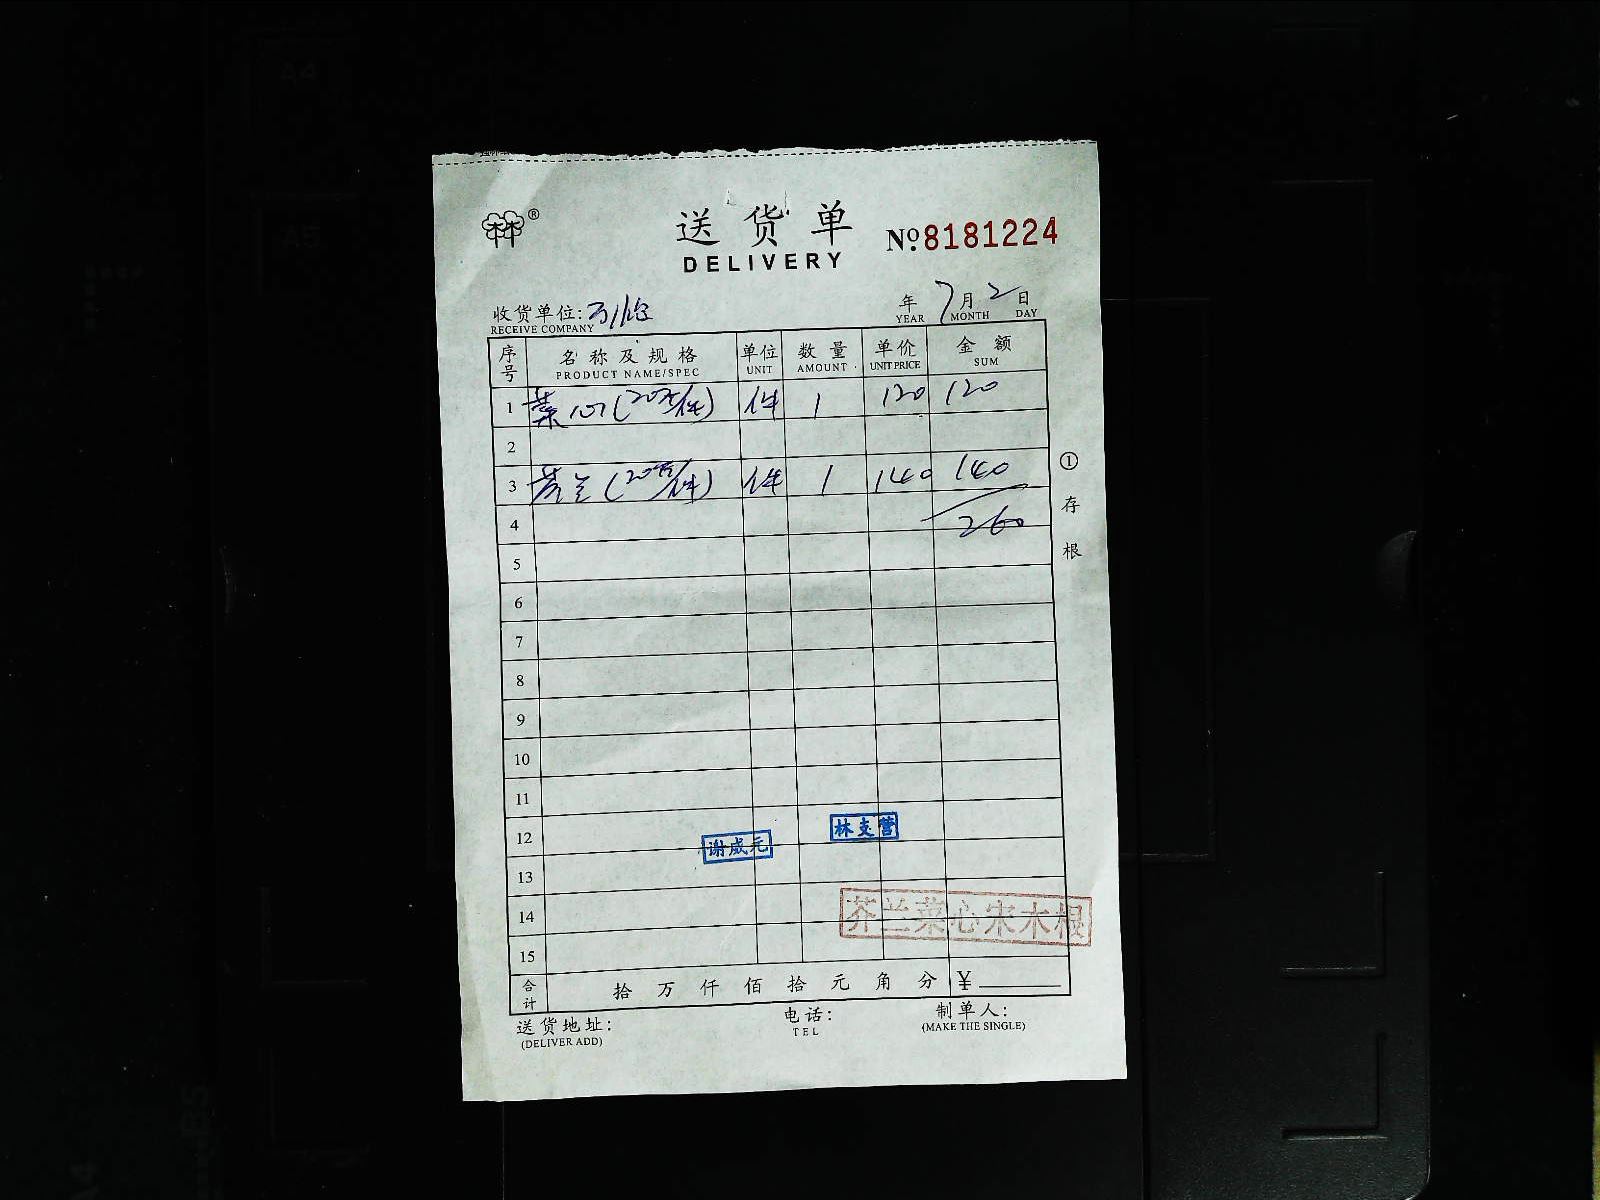 送货单
DELIVERY
№8181224
收货单位:
RECEIVE COMPANY
年 7月 2日
YEAR MONTH DAY
序号 名称及规格 单位 数量 单价 金额
PRODUCT NAME/SPEC UNIT AMOUNT UNIT PRICE SUM
1 菜心(20斤/件) 件 1 120 120
2
3 芥兰(20斤/件) 件 1 140 140
4 260
5
6
7
8
9
10
11
12
13
14
15
①存根
林支营
谢成元
芥兰菜心宋木根
合计 拾 万 仟 佰 拾 元 角 分 ¥
送货地址: 电话: 制单人:
(DELIVER ADD) TEL (MAKE THE SINGLE)